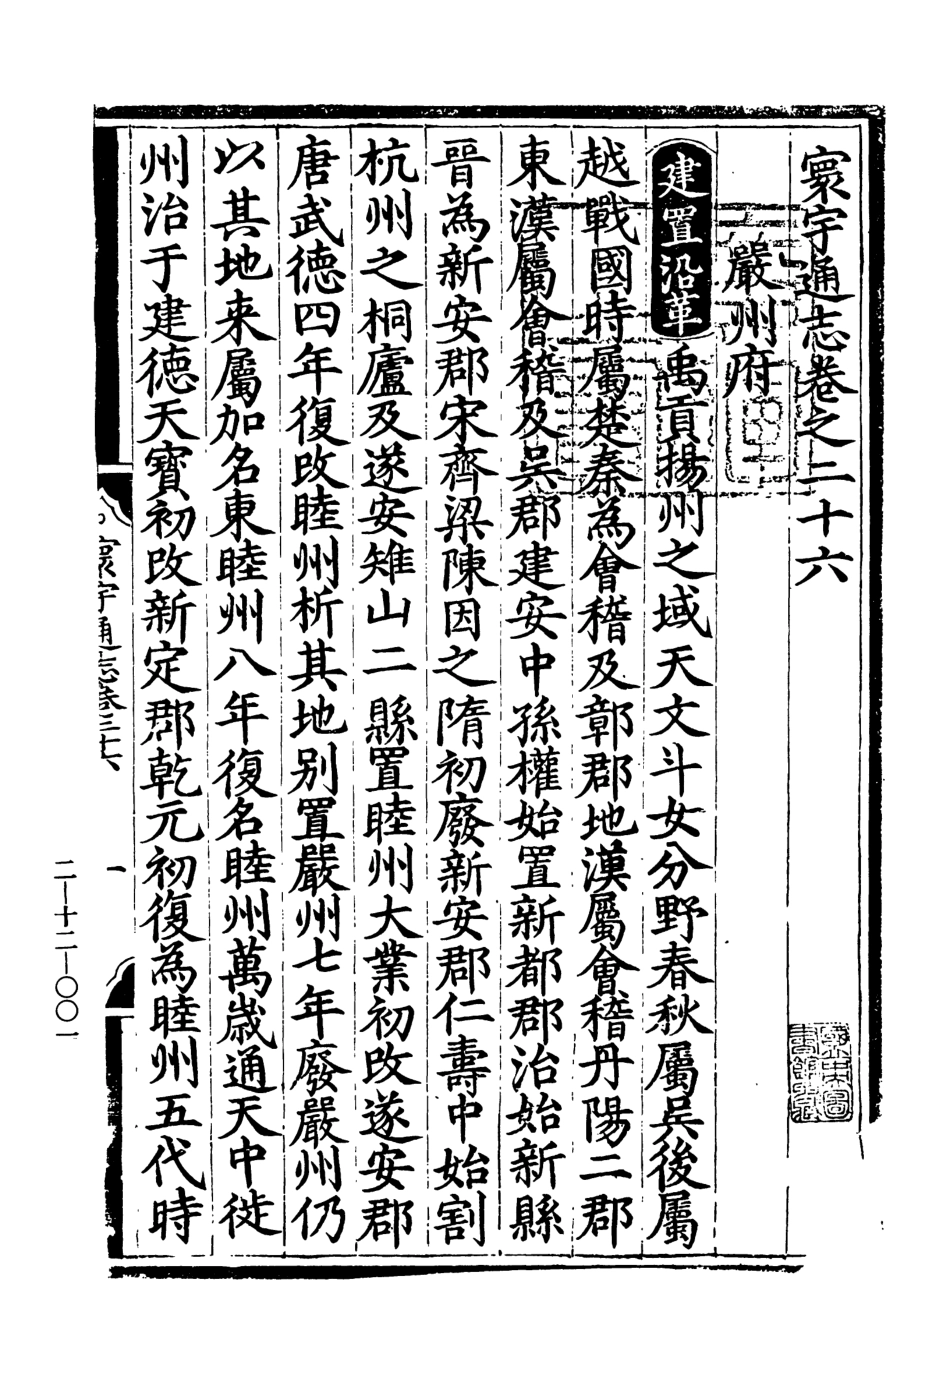 寰宇通志卷之二十六
嚴州府
建置沿革禹貢揚州之域天文斗女分野春秋屬吳後屬
越戰國時屬楚秦為會稽及鄣郡地漢屬會稽丹陽二郡
東漢屬會稽及吳郡建安中孫權始置新都郡治始新縣
晉為新安郡宋齊梁陳因之隋初廢新安郡仁壽中始割
杭州之桐廬及遂安雉山二縣置睦州大業初改遂安郡
唐武德四年復改睦州析其地別置嚴州七年廢嚴州仍
以其地来屬加名東睦州八年復名睦州萬歲通天中徙
州治于建德天寶初改新定郡乾元初復為睦州五代時
寰宇通志卷二十六
一
二—十二—〇〇一